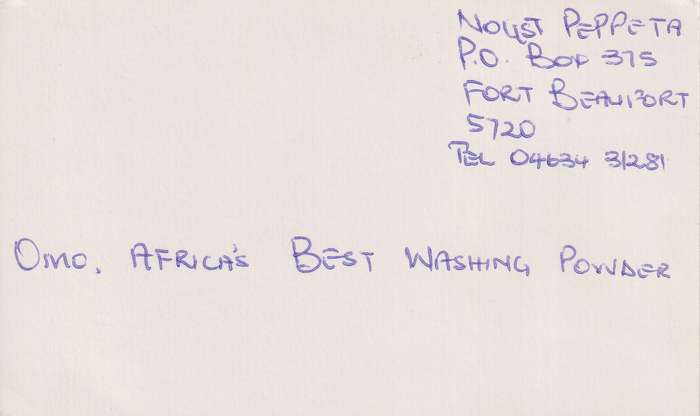 NOLIST PEPPETA
P.O. BOX 375
FORT BEAUFORT
5720
TEL 04634 31281
OMO. AFRICA'S BEST WASHING POWDER